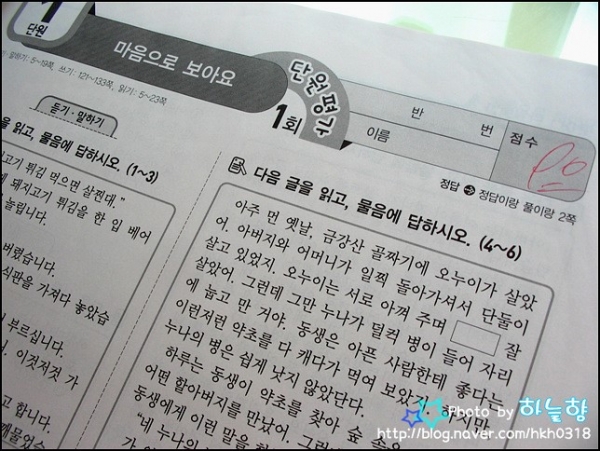 1
단원
마음으로 보아요
단원평가
1회
반 번
이름
점수
90
듣기·말하기: 5~19쪽, 쓰기: 121~133쪽, 읽기: 5~23쪽
정답 정답이랑 풀이랑 2쪽
듣기·말하기
읽고, 물음에 답하시오. (1~3)
고기 튀김 먹으면 살찐대."
돼지고기 튀김을 한 입 베어
놀립니다.
버렸습니다.
식판을 가져다 놓았습
부르십니다.
이것저것 가
고 합니다.
다음 글을 읽고, 물음에 답하시오. (4~6)
아주 먼 옛날, 금강산 골짜기에 오누이가 살았
어. 아버지와 어머니가 일찍 돌아가셔서 단둘이
살고 있었지. 오누이는 서로 아껴 주며 잘
살았어. 그런데 그만 누나가 덜컥 병이 들어 자리
에 눕고 만 거야. 동생은 아픈 사람한테 좋다는
이런저런 약초를 다 캐다가 먹여 보았지. 하지만
누나의 병은 쉽게 낫지 않았단다.
하루는 동생이 약초를 찾아 숲 속
어떤 할아버지를 만났어. 그런
동생에게 이런 말을
"네 누나의
Photo by 하늘향
http://blog.naver.com/hkh0318